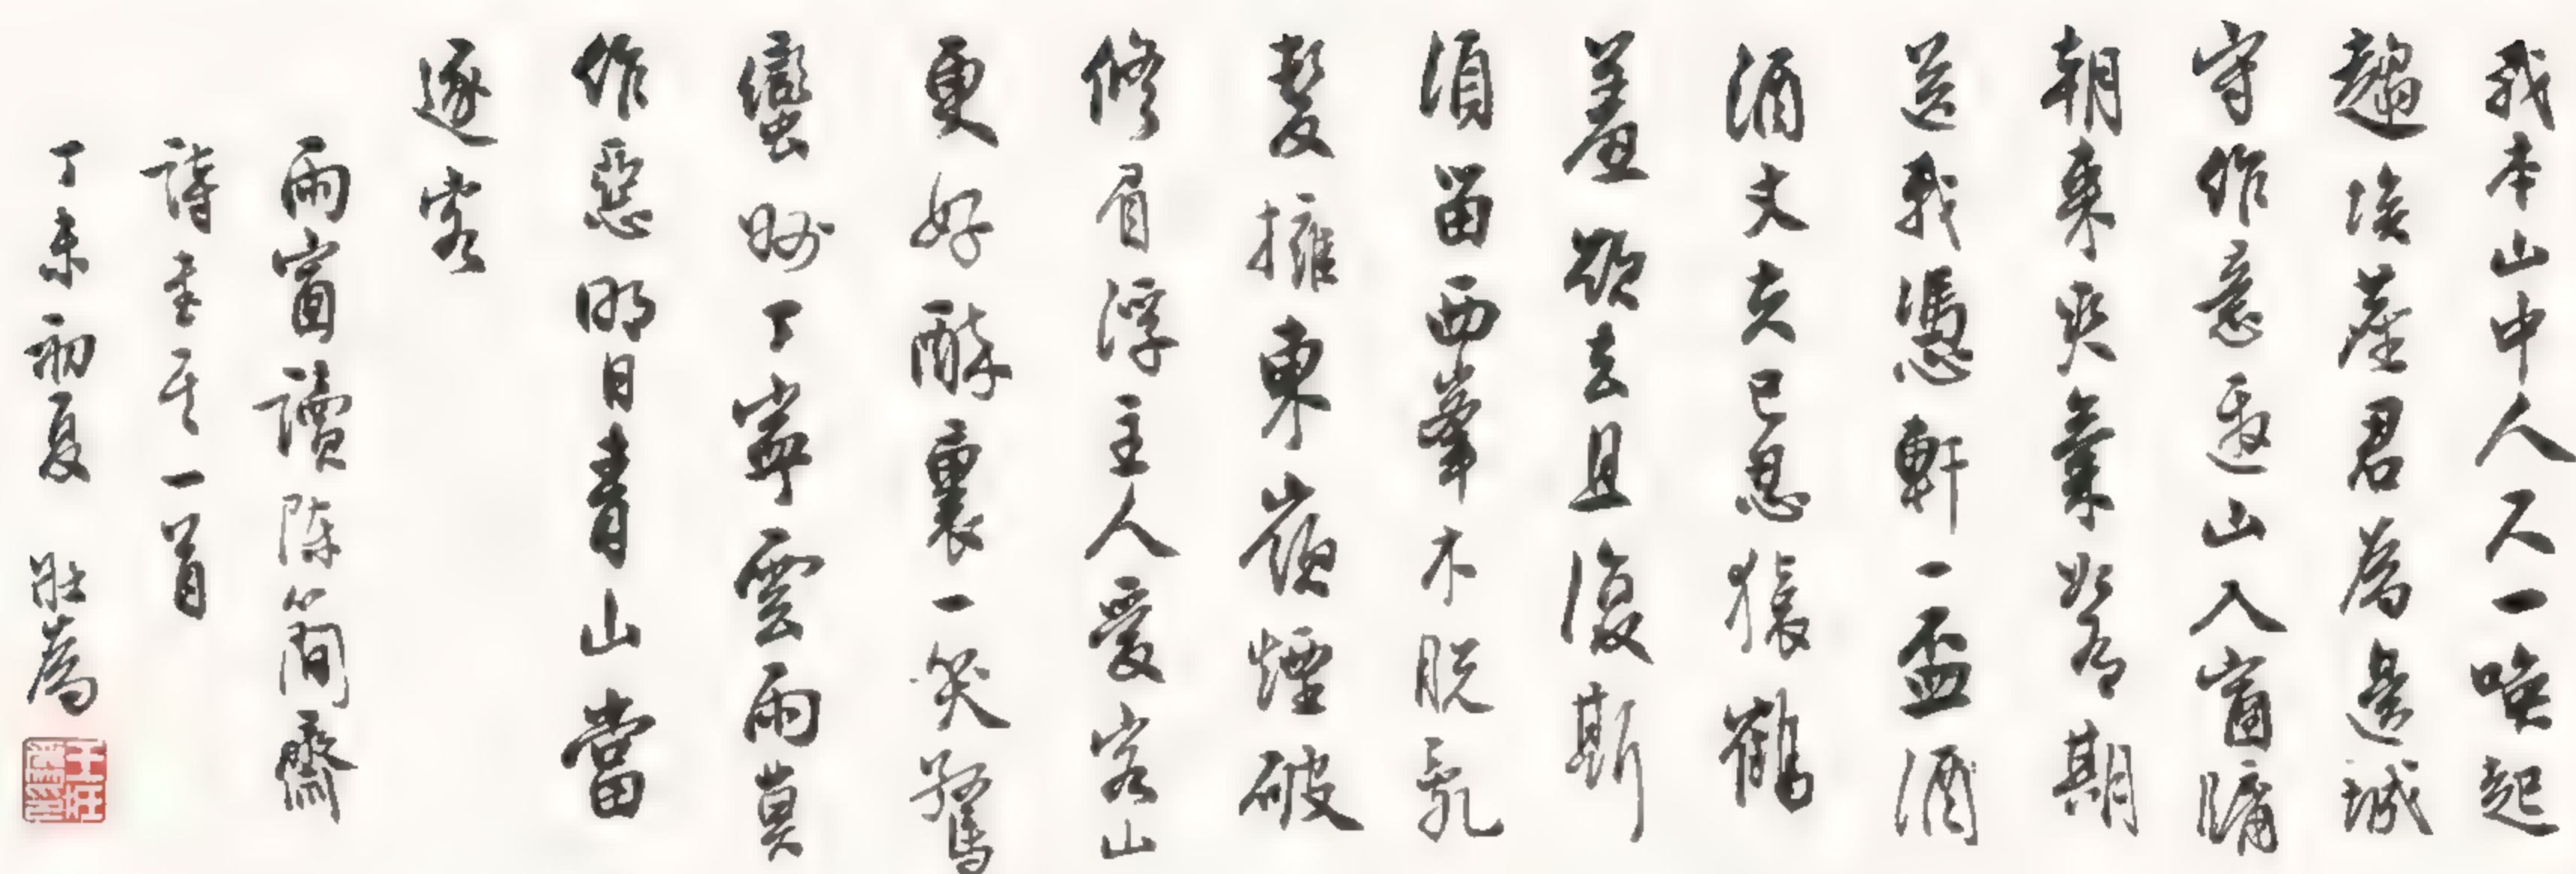 我本山中人尺一喚起
趨埃塵君為邊城
守作意邀山入窗牖
朝來爽氣如有期
送我憑軒一盃酒
酒丈夫已忍猿鶴
羞欲去且復斯
須留西峯木脫亂
髮擁東嶺煙破
修眉浮主人愛客山
更好醉裏一笑驚
蠻州丁寧雲雨莫
作惡明日青山當
逐客
雨窗讀陳簡齋
詩書其一首
丁未初夏 壯為